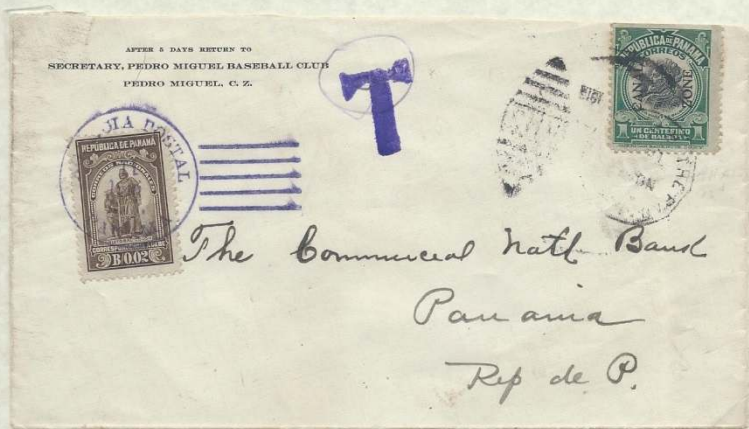 AFTER 5 DAYS RETURN TO
SECRETARY, PEDRO MIGUEL BASEBALL CLUB
PEDRO MIGUEL, C. Z.
T
REPÚBLICA DE PANAMÁ
CORREOS
CANAL ZONE
1 UN CENTÉSIMO 1
DE BALBOA
POSTAL
REPÚBLICA DE PANAMÁ
CORREOS NACIONALES
B/0.02
The Commercial Natl. Bank
Panama
Rep de P.